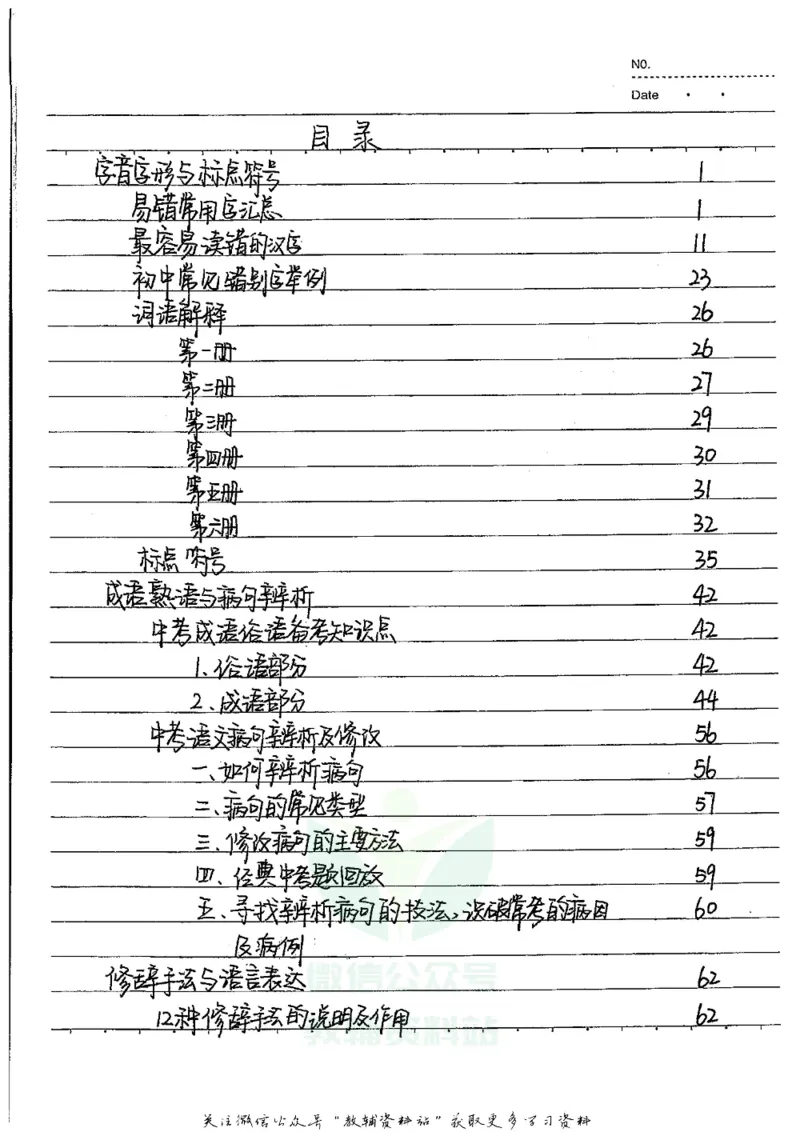 NO.
Date
目录
字音字形与标点符号 1
易错常用字汇总 1
最容易读错的汉字 11
初中常见错别字举例 23
词语解释 26
第一册 26
第二册 27
第三册 29
第四册 30
第五册 31
第六册 32
标点符号 35
成语熟语与病句辨析 42
中考成语俗语备考知识点 42
1、俗语部分 42
2、成语部分 44
中考语文病句辨析及修改 56
一、如何辨析病句 56
二、病句的常见类型 57
三、修改病句的主要方法 59
四、经典中考题回放 59
五、寻找辨析病句的技法,识破常考的病因 60
及病例
修辞手法与语言表达 62
12种修辞手法的说明及作用 62
微信公众号
教辅资料站
关注微信公众号"教辅资料站"获取更多学习资料